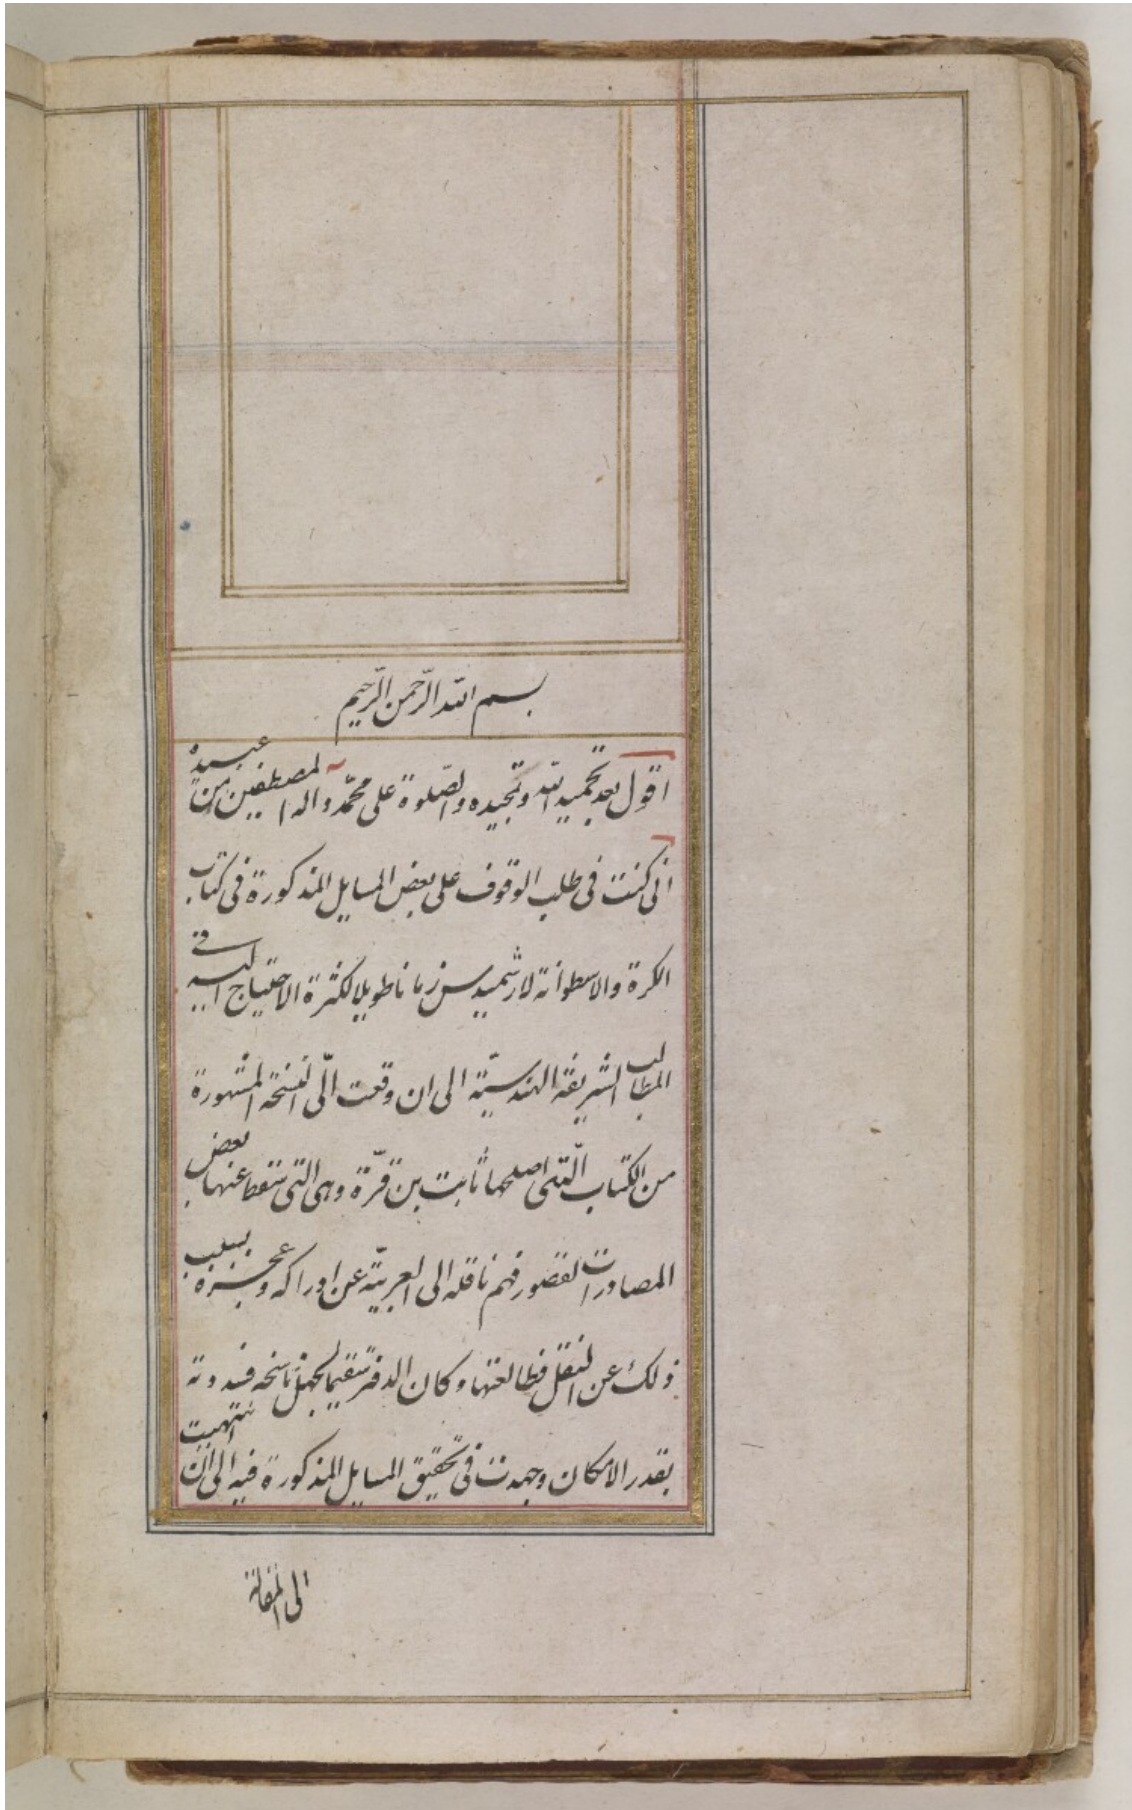 بسم الله الرّحمن الرّحيم
اقول بعد تحميد الله وتمجيده والصّلوة على محمّد واله المصطفين من عبيده
انى كنت فى طلب الوقوف على بعض المسايل المذكورة فى كتاب
الكرة والاسطوانة لارشميدس زمانا طويلا لكثرة الاحتياج اليه فى
المطالب الشريفة الهندسيّة الى ان وقعت الّى النسخة المشهورة
من الكتاب الّتى اصلحها ثابت بن قرّة وهى التى سقط عنها بعض
المصادرات لقصور فهم ناقله الى العربيّة عن ادراكه وعجزه بسبب
ذلك عن النقل فطالعتها وكان الدفتر سقيما لجهل ناسخه فسددته
بقدر الامكان وجهدت فى تحقيق المسايل المذكورة فيه الى ان انتهيت
الى المقالة